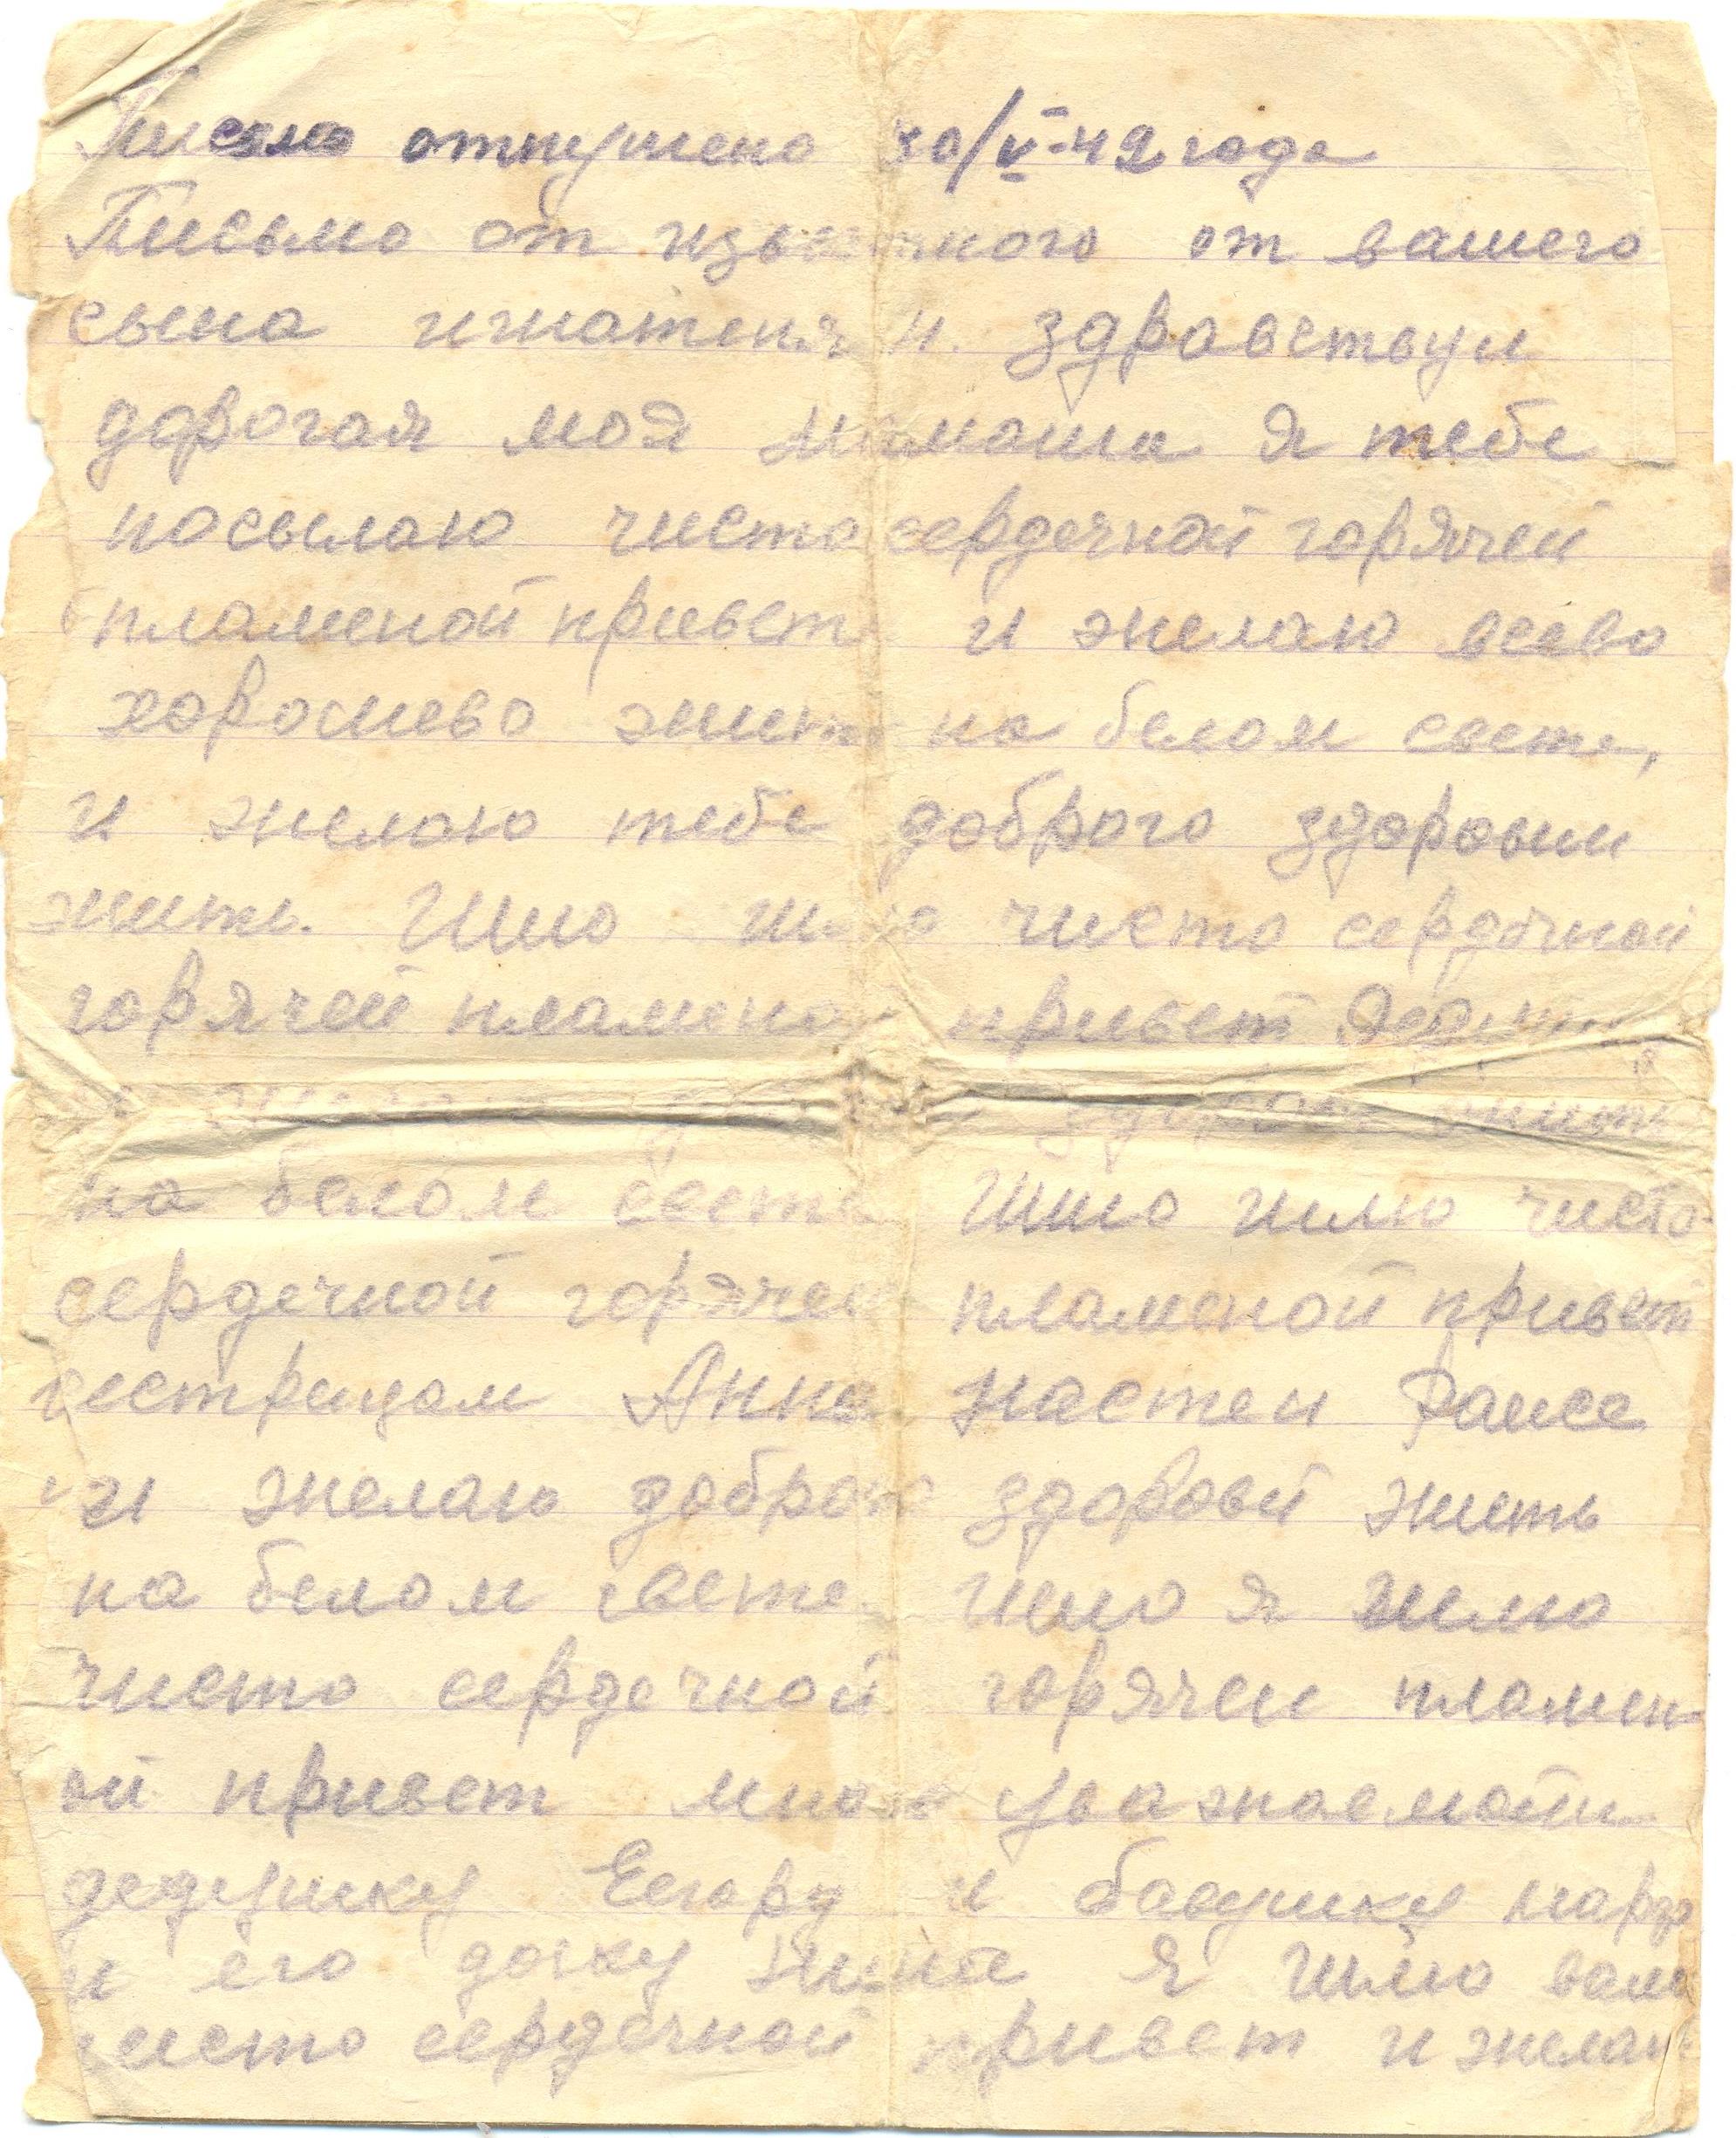 Письмо отпушено 30/V-42 года
Письмо от от вашего
сына и. здравствуй
дорогая моя мамаша я тебе
посылаю чисто сердечной горячей
пламеной привет и желаю всево
хорошево жить на белом свете,
и желаю тебе доброго здоровии
жить. Шлю чисто сердечной
горячей пламеной привет
жить
на белом свете Шлю чисто-
сердечной горячей пламеной привет
сестрицам Анне Настеи Раисе
и желаю доброго здоровй жить
на белом свете Шлю я
чисто сердечной горячеи пламен-
ой привет много уважаемой
дедушку Егору и бабушку
и его дочку Нина я Шлю вам
чисто сердечной привет и желаю